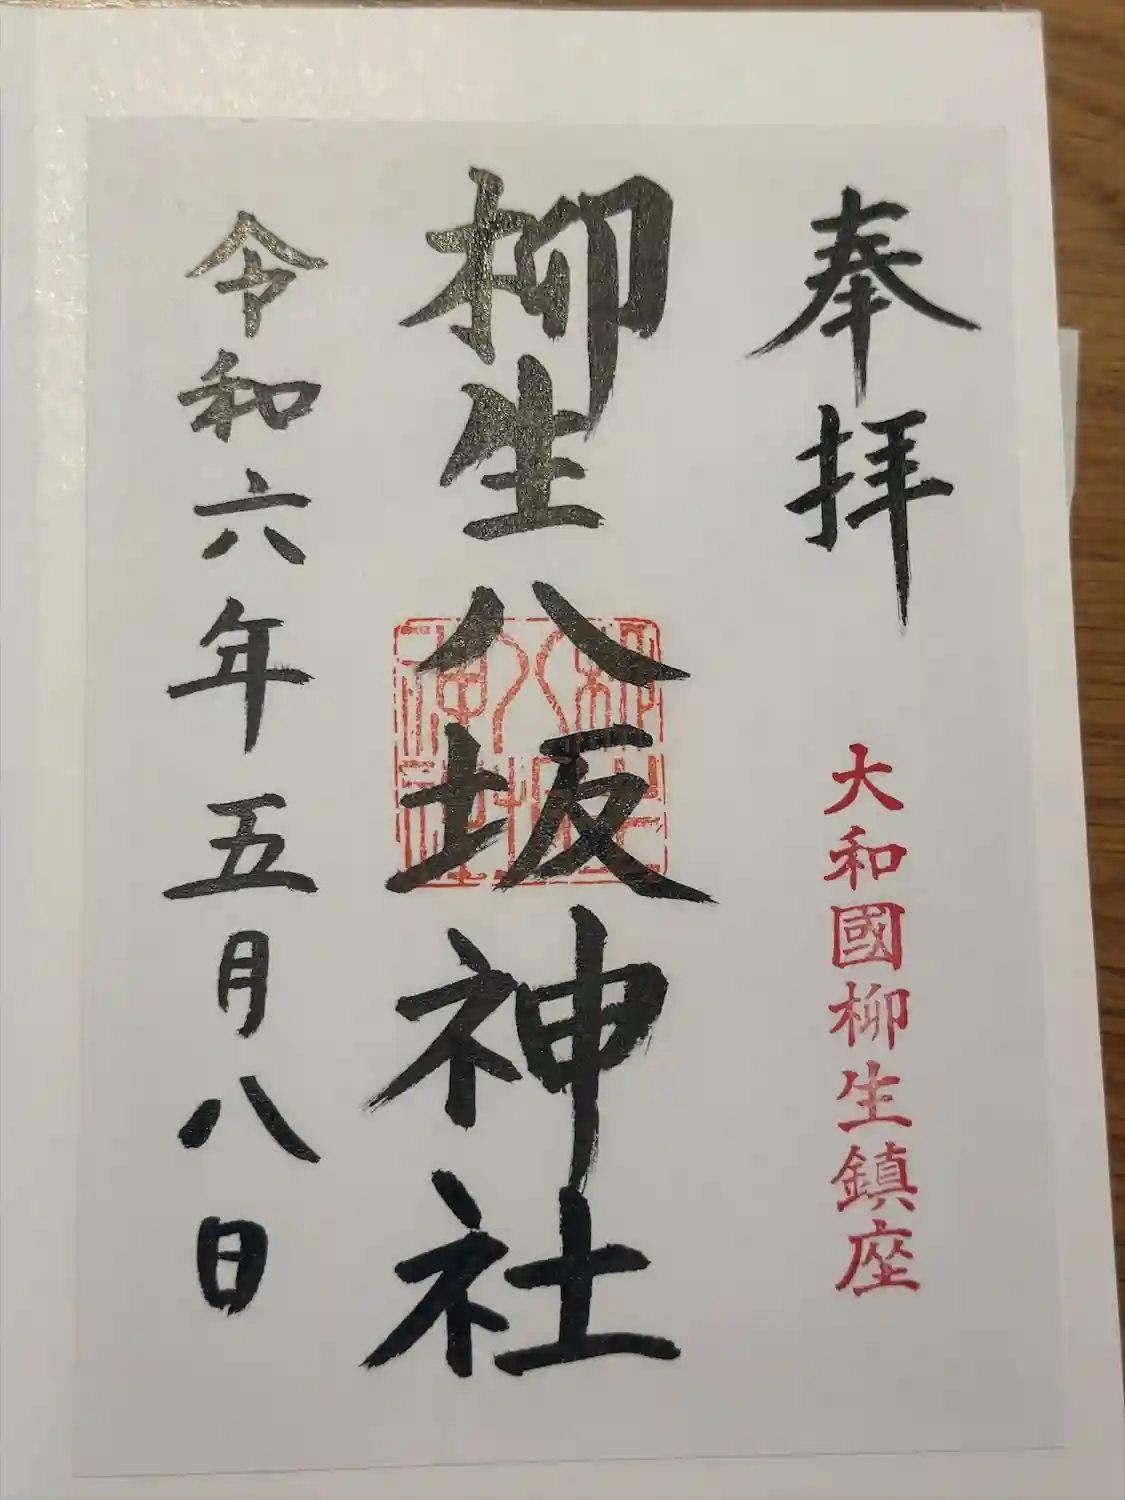 奉拝
大和國柳生鎮座
柳生八坂神社
柳生八坂神社
令和六年五月八日